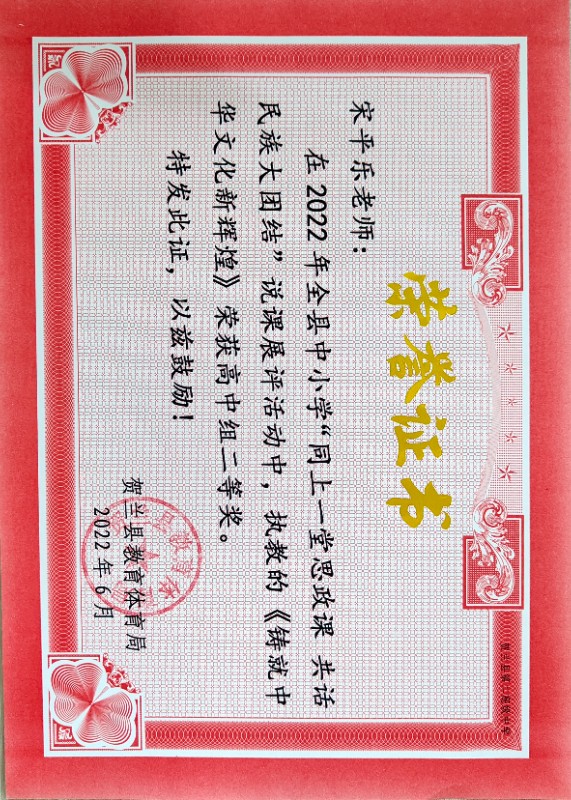 荣誉证书
宋平乐老师：
在2022年全县中小学“同上一堂思政课 共话
民族大团结”说课展评活动中，执教的《铸就中
华文化新辉煌》荣获高中组二等奖。
特发此证，以兹鼓励！
贺兰县教育体育局
2022年6月